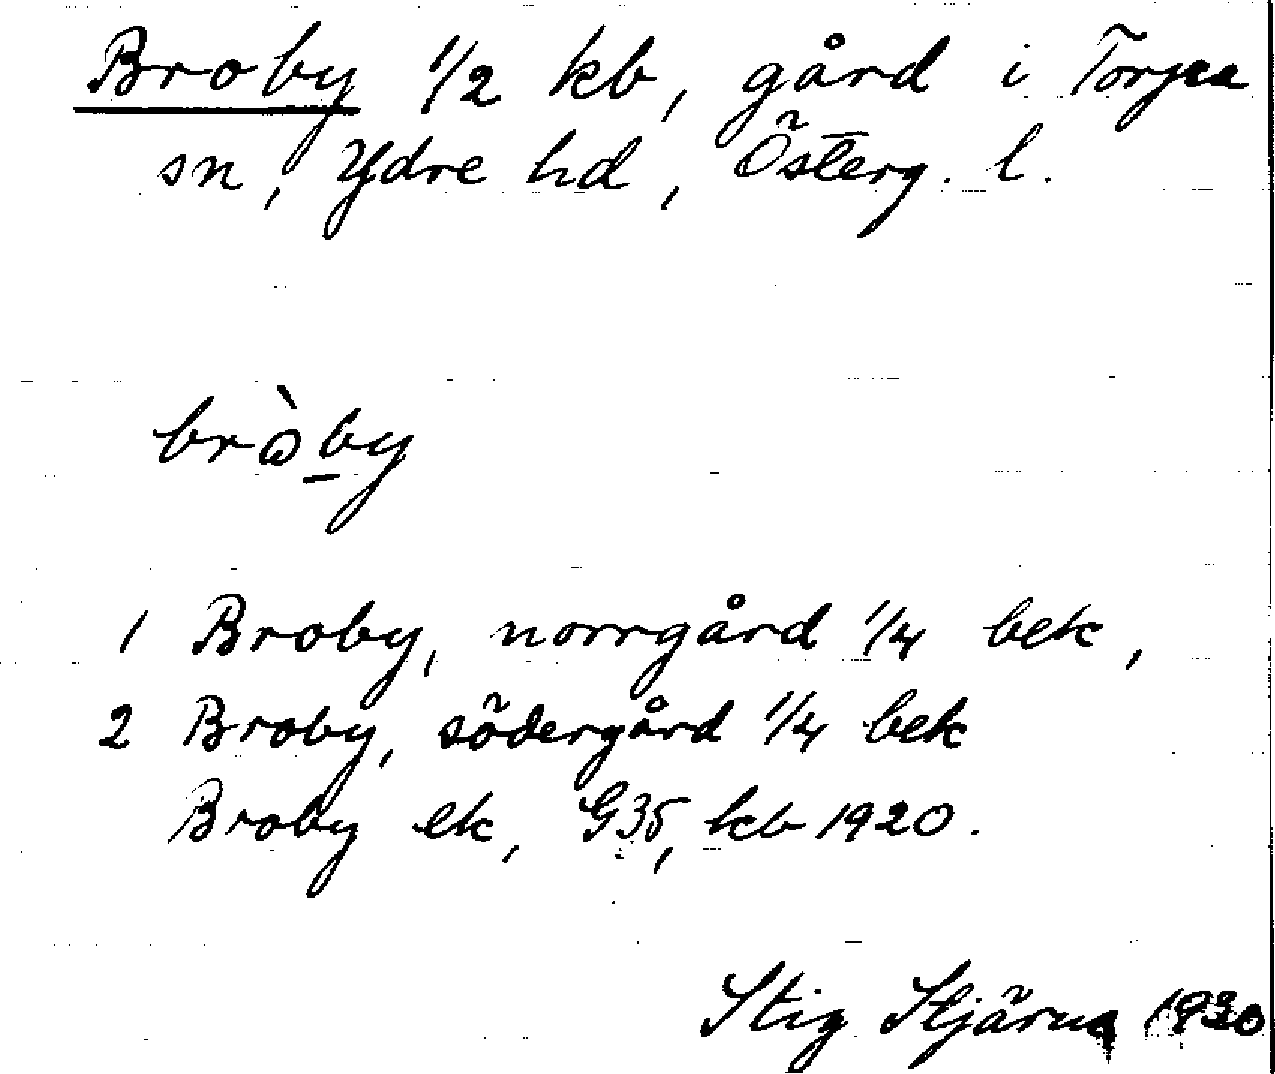 Broby 1/2 kb, gård i Torpa
sn, Ydre hd, Österg. l.
bròby
1 Broby, norrgård 1/4 bek,
2 Broby, södergård 1/4 bek
Broby ek, G35, kb 1920.
Stig Stjärna 1930